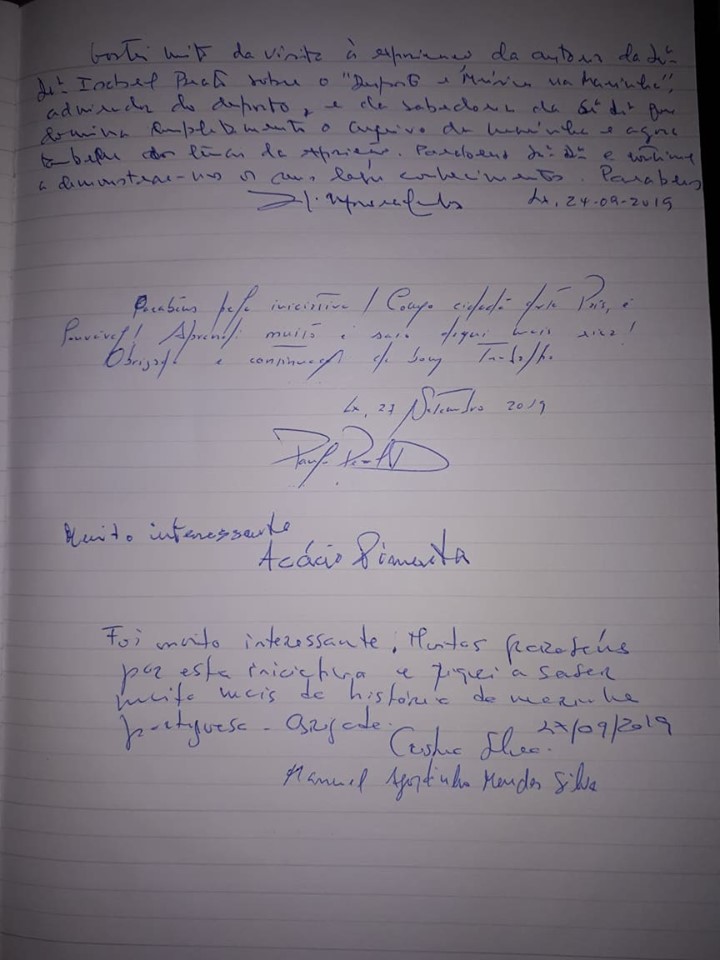 Gostei muito da visita à da autora da Sr.ª
Dr.ª Isabel sobre o "Desporto e Música na Marinha",
do desporto, e da sabedora da Sr.ª Dr.ª que
domina completamente o arquivo da marinha e agora
também. Parabéns Sr.ª Dr.ª e continue
a demonstrar-nos o seu conhecimento. Parabéns
Lx, 24-09-2019
Parabéns pela iniciativa! Como cidadão deste País, é
Aprendi muito e saio daqui mais rico!
Obrigado e continuação de bom Trabalho.
Lx, 27 Setembro 2019
Muito interessante
Acácio Pimenta
Foi muito interessante, Muitos parabéns
por esta iniciativa e fiquei a saber
muito mais da história da marinha
portuguesa - Obrigada.
27/09/2019
Silva.
Manuel Agostinho Mendes Silva